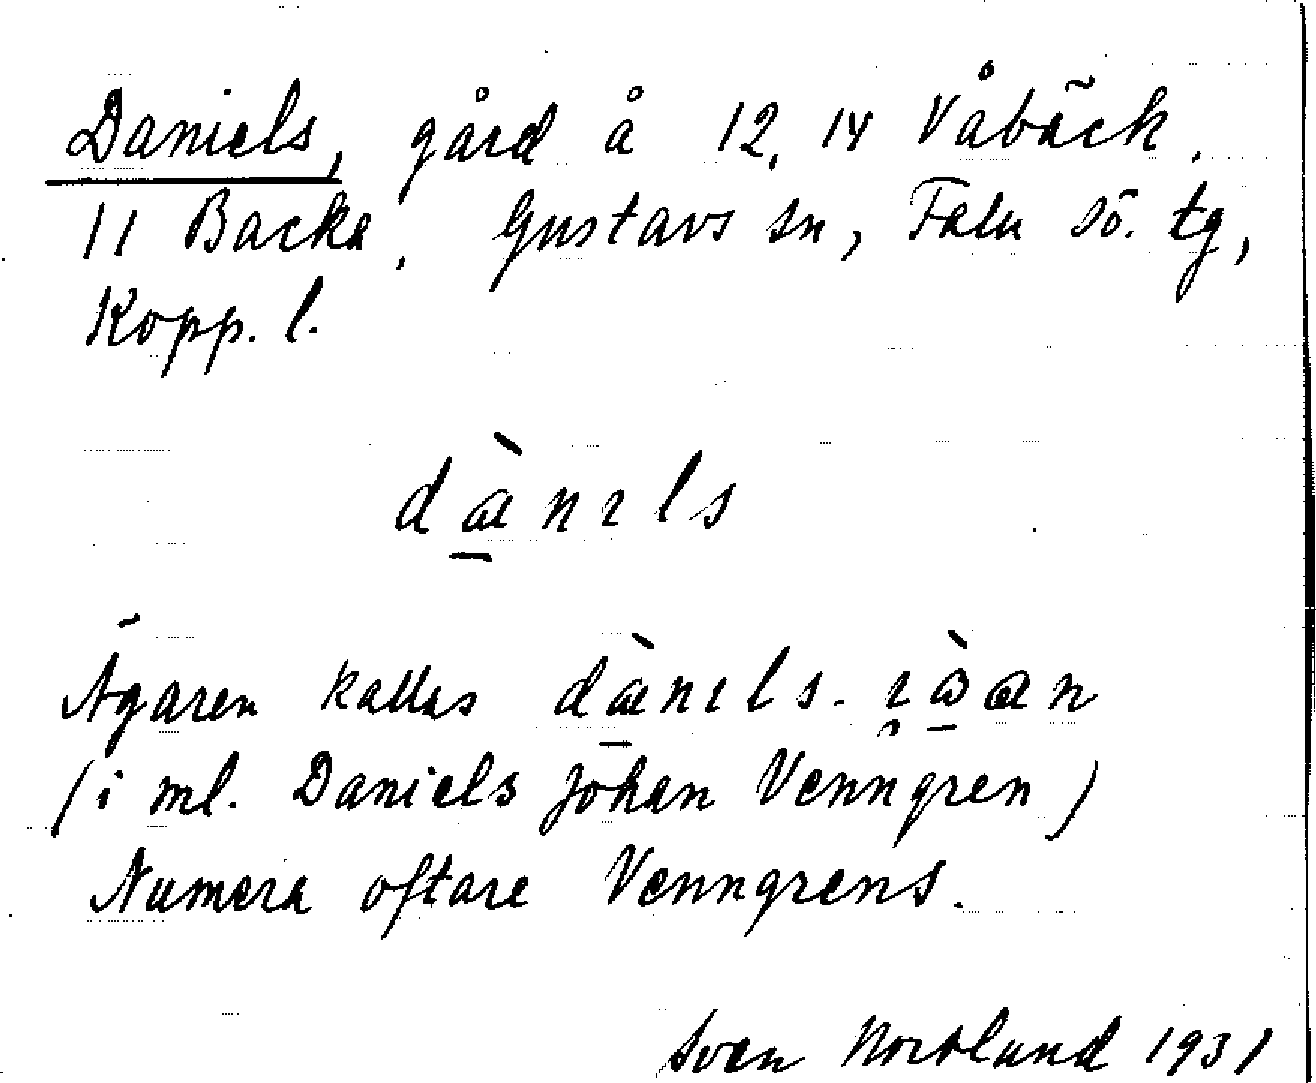 Daniels, gård å 12, 14 Våbäck,
11 Backa, Gustavs sn, Falu sö. tg,
Kopp. l.
dànıls
Ägaren kallas dànıls-
(i ml. Daniels Johan Venngren)
Numera oftare Venngrens.
Sven Norrlund 1931